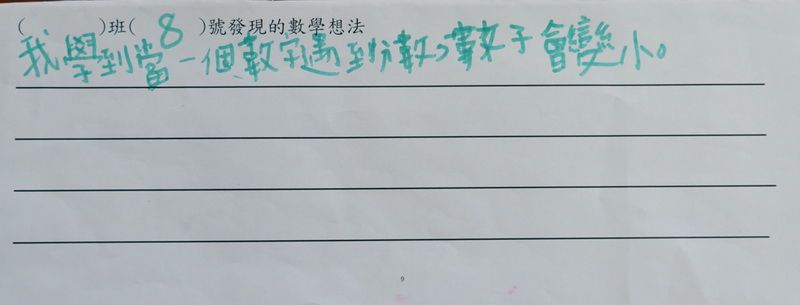 (　　　)班( 8 )號發現的數學想法
我學到當一個數字遇到分數,數子會變小。
9